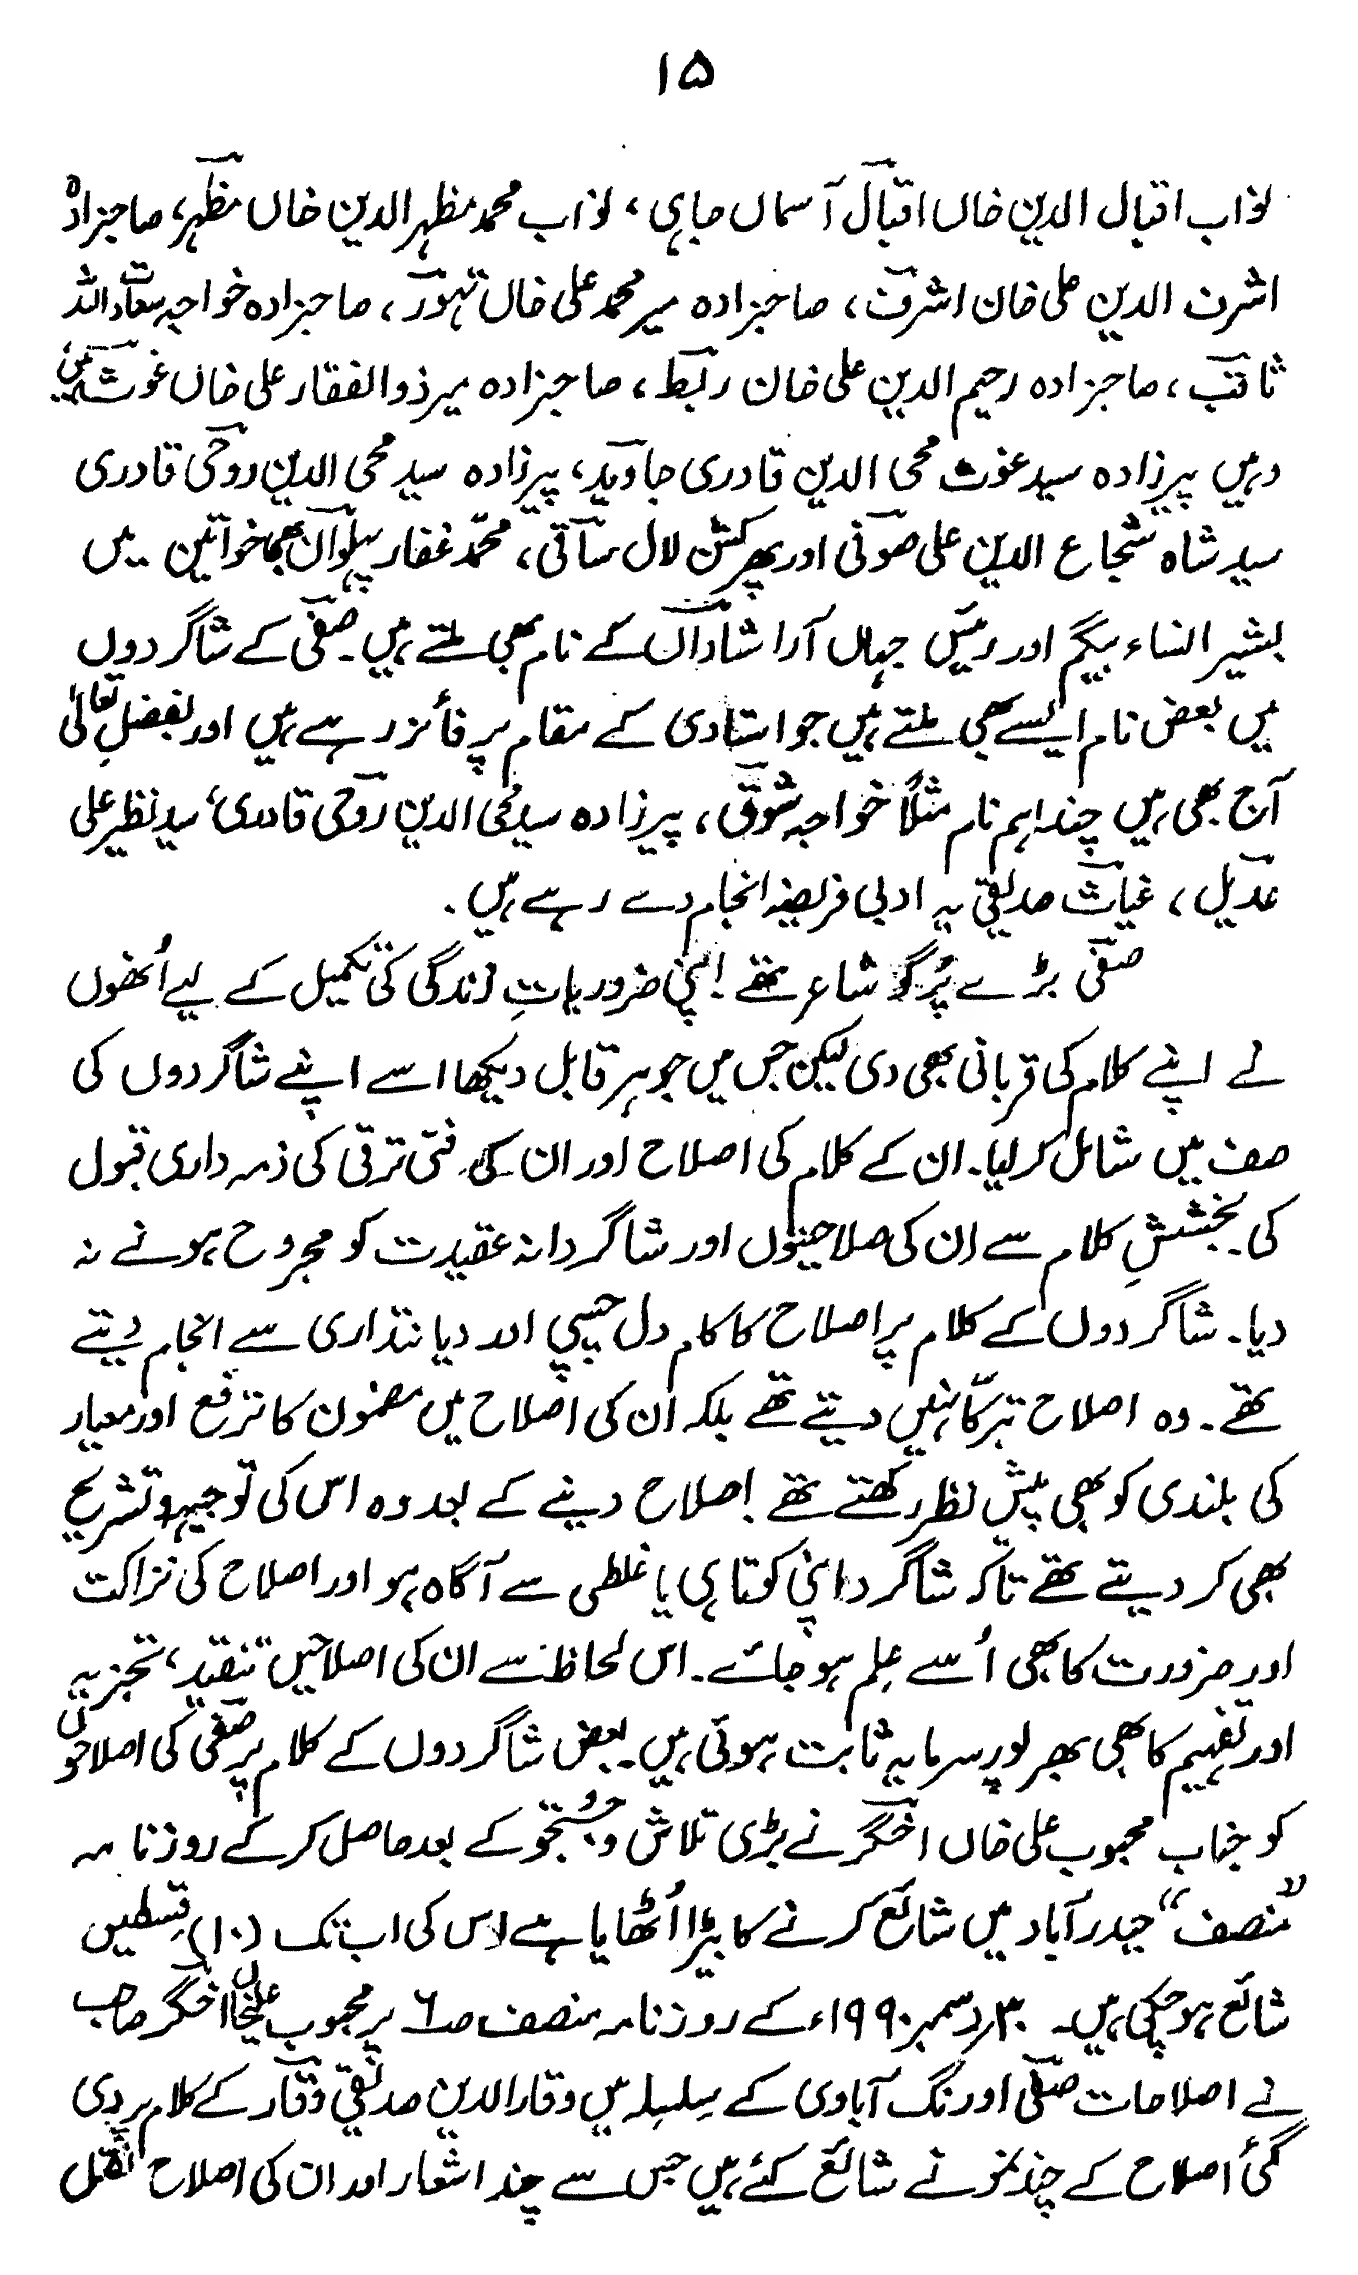 ۱۵
نواب اقبال الدین خاں اقبالؔ آسماں جاہی، نواب محمد مظہر الدین خاں مظہرؔ، صاحبزادہ
اشرف الدین علی خان اشرفؔ، صاحبزادہ میر محمد علی خاں تہورؔ، صاحبزادہ خواجہ سعادت اللہ
ثاقبؔ، صاحبزادہ رحیم الدین علی خان ربطؔ، صاحبزادہ میر ذوالفقار علی خاں غوثؔ ہیں
وہیں پیرزادہ سید غوث محی الدین قادری جاویدؔ، پیرزادہ سید محی الدین روحیؔ قادری
سید شاہ شجاع الدین علی صوفیؔ اور پھر کشن لال ساقیؔ، محمّد غفار پہلوانؔ بھی خواتین میں
بشیر النساء بیگم اور رئیس جہاں آرا شاداںؔ کے نام بھی ملتے ہیں۔ صفیؔ کے شاگردوں
میں بعض نام ایسے بھی ملتے ہیں جو استادی کے مقام پر فائز رہے ہیں اور بفضلِ تعالیٰ
آج بھی ہیں چند اہم نام مثلاً خواجہ شوقؔ، پیرزادہ سید محی الدین روحیؔ قادری، سید نظیر علی
عدیلؔ، غیاثؔ صدیقی یہ ادبی فریضہ انجام دے رہے ہیں۔
صفیؔ بڑے پُرگو شاعر تھے اپنی ضروریاتِ زندگی کی تکمیل کے لیے اُنھوں
نے اپنے کلام کی قربانی بھی دی لیکن جس میں جوہر قابل دیکھا اسے اپنے شاگردوں کی
صف میں شامل کر لیا۔ ان کے کلام کی اصلاح اور ان کی فنّی ترقی کی ذمہ داری قبول
کی۔ بخششِ کلام سے ان کی صلاحیتوں اور شاگردانہ عقیدت کو مجروح ہونے نہ
دیا۔ شاگردوں کے کلام پر اصلاح کا کام دل چسپی اور دیانتداری سے انجام دیتے
تھے۔ وہ اصلاح تبرکاً نہیں دیتے تھے بلکہ ان کی اصلاح میں مضمون کا ترفع اور معیار
کی بلندی کو بھی پیش نظر رکھتے تھے اصلاح دینے کے بعد وہ اس کی توجیہہ و تشریح
بھی کر دیتے تھے تاکہ شاگرد اپنی کوتاہی یا غلطی سے آگاہ ہو اور اصلاح کی نزاکت
اور ضرورت کا بھی اُسے علم ہو جائے۔ اس لحاظ سے ان کی اصلاحیں تنقید، تجزیہ
اور تفہیم کا بھی بھر پور سرمایہ ثابت ہوتی ہیں۔ بعض شاگردوں کے کلام پر صفیؔ کی اصلاحوں
کو جناب محبوب علی خاں اخگرؔ نے بڑی تلاش و جُستجو کے بعد حاصل کر کے روزنامہ
”منصف“ حیدرآباد میں شائع کرنے کا بیڑا اُٹھایا ہے اس کی اب تک (۱۰) قسطیں
شائع ہو چکی ہیں۔ ۳۰ دسمبر ۱۹۹۰ء کے روزنامہ منصف صـ۶ پر محبوب علی خاں اخگرؔ صاحب
نے اصلاحات صفیؔ اورنگ آبادی کے سلسلہ میں وقار الدین صدیقی وقارؔ کے کلام پر دی
گئی اصلاح کے چند نمونے شائع کئے ہیں جس سے چند اشعار اور ان کی اصلاح نقل